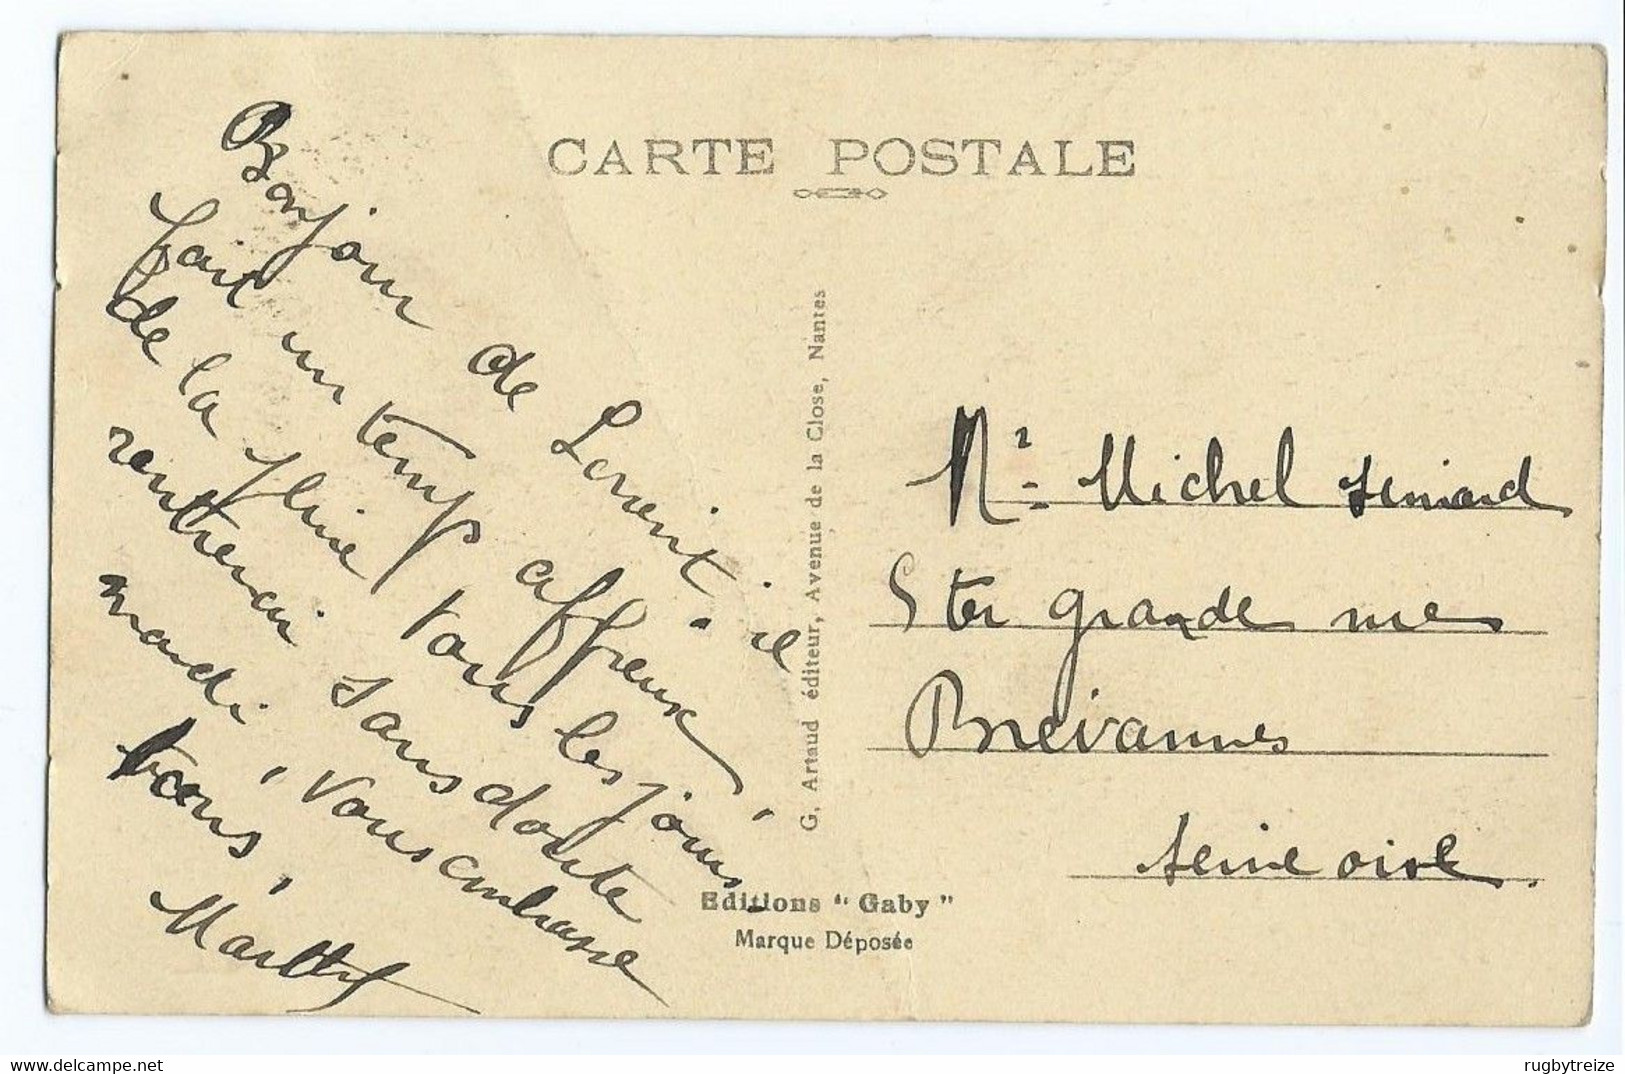 CARTE POSTALE
Bonjour de Lorient. il
fait un temps affreux,
de la pluie tous les jours
rentrerai sans doute
mardi, vous embrasse
tous,
Marthe
G. Artaud éditeur, Avenue de la Close, Nantes
Editions "Gaby"
Marque Déposée
Mr. Michel
grande rue
Brevannes
Seine oise.
rugbytreize